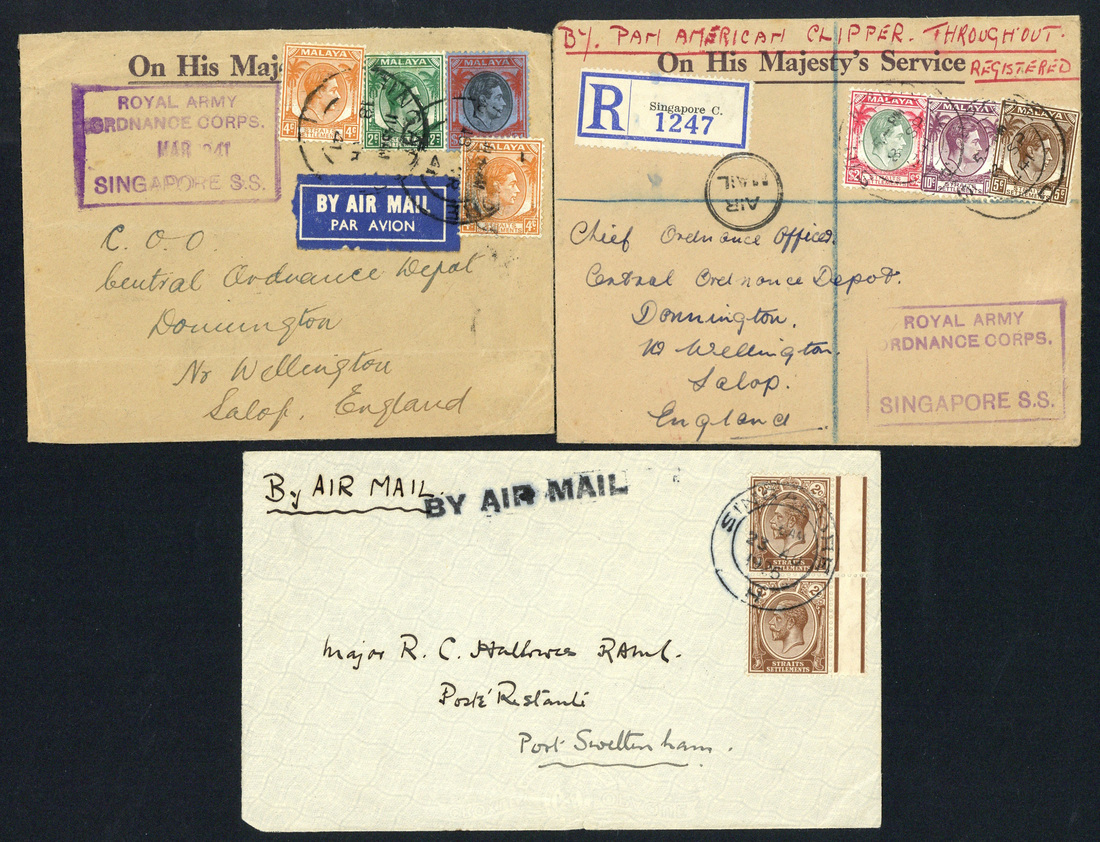 On His Maj
ROYAL ARMY
ORDNANCE CORPS.
MAR 1941
SINGAPORE S.S.
MALAYA
4c 4c
MALAYA
2c 2c
MALAYA
MALAYA
4c
BY AIR MAIL
PAR AVION
C. O. O.
Central Ordnance Depot
Donnington
Nr Wellington
Salop, England
BY. PAN AMERICAN CLIPPER. THROUGHOUT.
On His Majesty's Service
REGISTERED
R
Singapore C.
1247
AIR
MAIL
MALAYA
$2
MALAYA
10c
MALAYA
5c 5c
Chief Ordnance Officer
Central Ordnance Depot.
Donnington,
Nr Wellington.
Salop.
England.
ROYAL ARMY
ORDNANCE CORPS.
SINGAPORE S.S.
By AIR MAIL.
BY AIR MAIL
SINGAPORE
23
STRAITS
SETTLEMENTS
STRAITS
SETTLEMENTS
Major R. C. Hallowes RAMC.
Poste Restante
Port Swettenham.